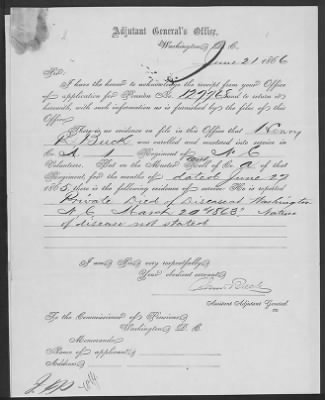 Adjutant General's Office,
Washington, D. C.
June 21 1866
Sir:
I have the honor to acknowledge the receipt from your Office
of application for Pension No. and to return it
herewith, with such information as is furnished by the files of this
Office.
There is evidence on file in this Office that Henry
R Buck was enrolled and mustered into service in
Co. Regiment of N. C
Volunteers, That on the Muster Roll of Co. of that
Regiment, for the months of dated June 27
1865, there is the following evidence of He is reported
Private Died of Disease at Washington
N. C March 20" 1865" Nature
of disease not stated
I am Sir very respectfully,
Your obedient servant,
Assistant Adjutant General.
To the Commissioner of Pensions,
Washington D. C.
Memoranda:
Name of applicant,
Address